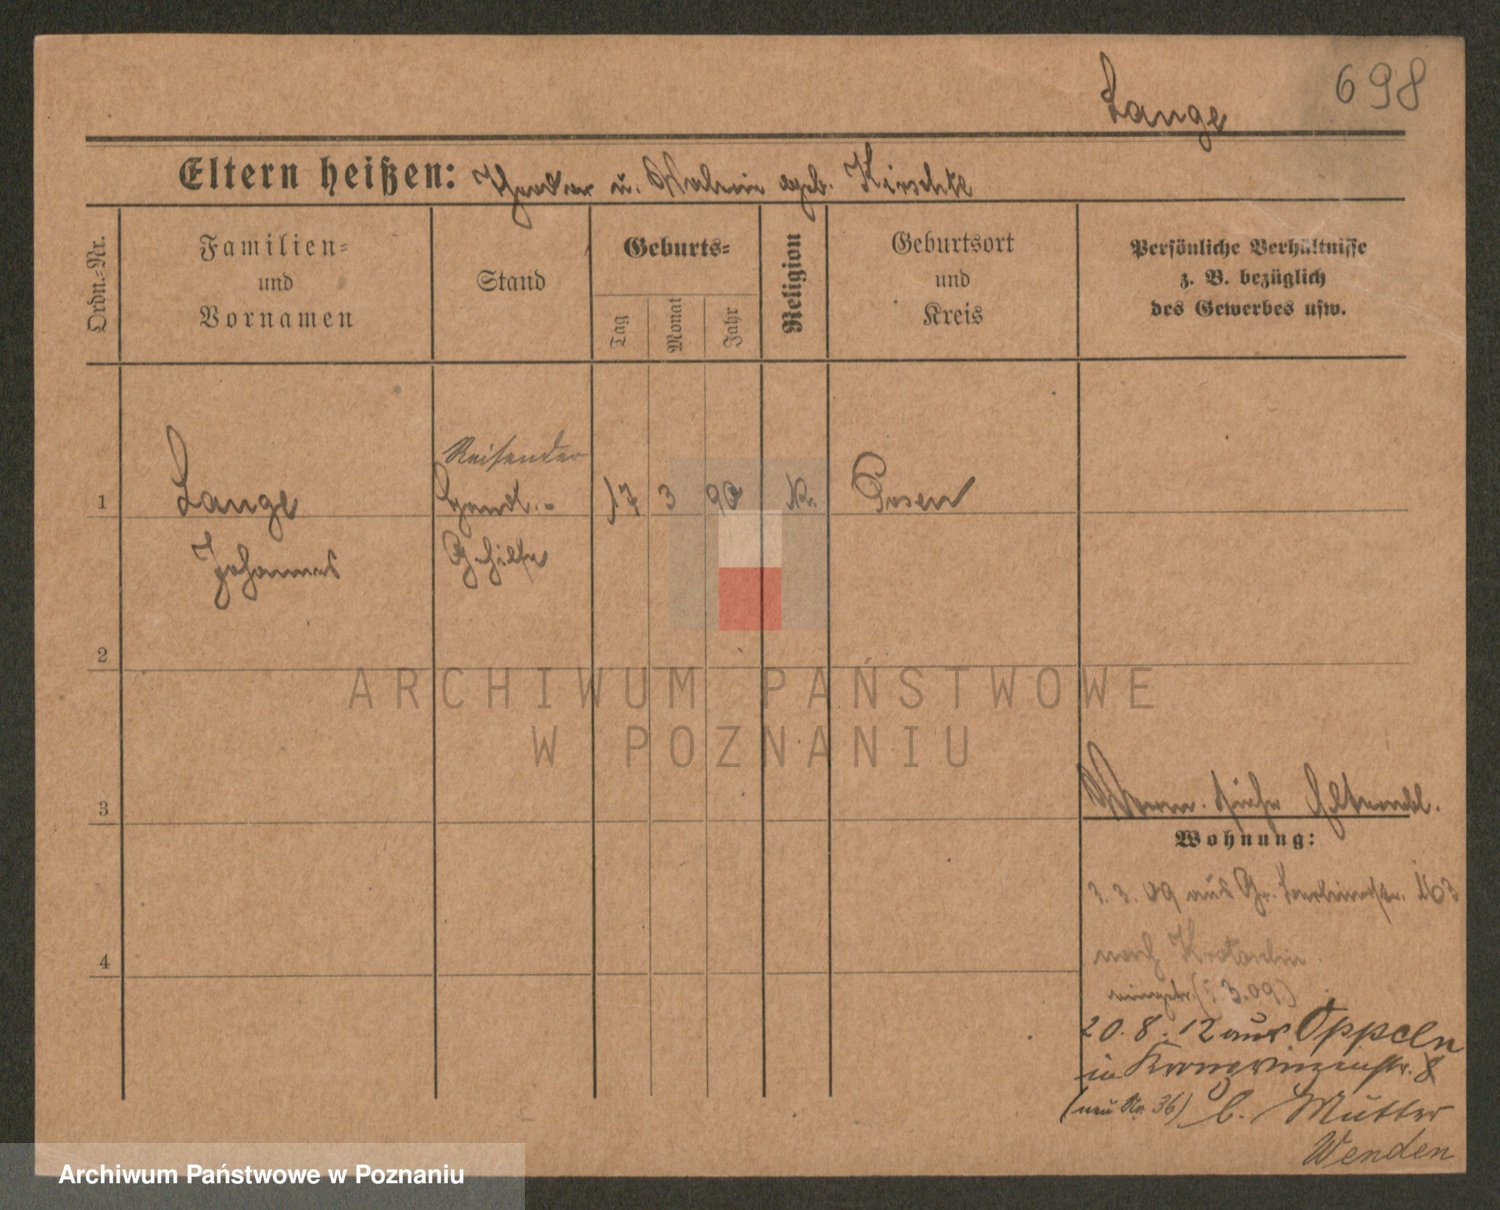 698
Lange
Eltern heißen: Theodor u. geb. Kirschke
Ordn.-Nr.
Familien-
und
Vornamen
Stand
Geburts-
Tag
Monat
Jahr
Religion
Geburtsort
und
Kreis
Persönliche Verhältnisse
z. B. bezüglich
des Gewerbes usw.
Reisender
1 Lange Handl.- 17 3 90 K. Posen
Johannes Gehilfe
2
ARCHIWUM PAŃSTWOWE
W POZNANIU
3
siehe Elternbl.
Wohnung:
3. 3. 09 aus Gr. 163
4
nach Krotoschin
eingetr. 3.09)
20. 8. 12 aus Oppeln
in Kronprinzenstr. 8
(neu No. 36) b. Mutter
Wenden
Archiwum Państwowe w Poznaniu